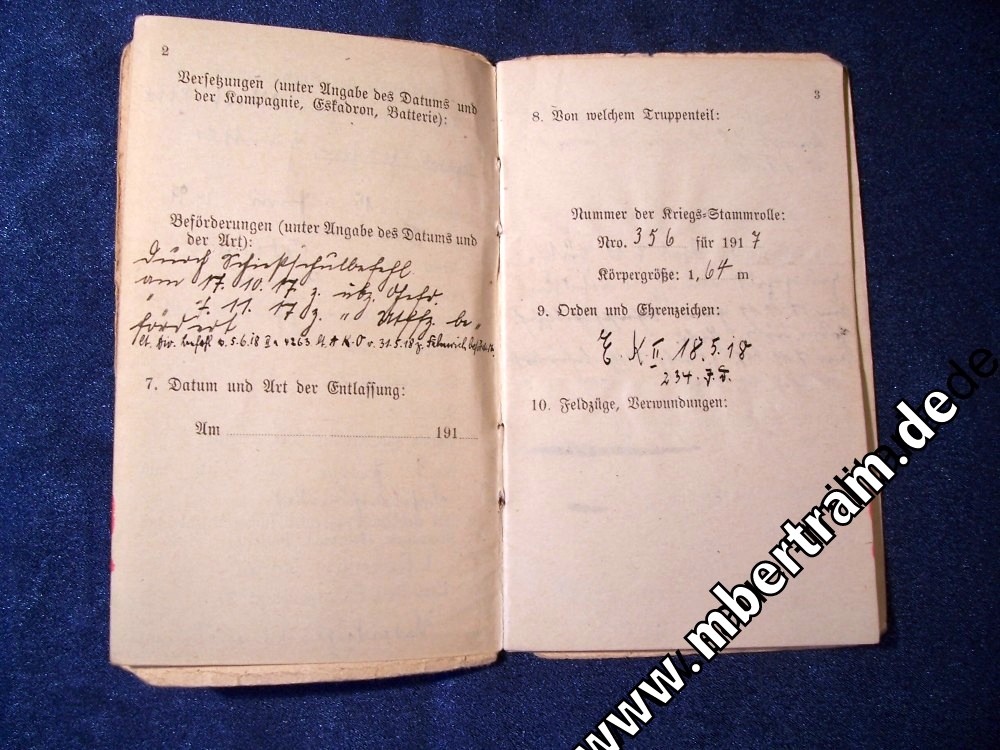 2
Versetzungen (unter Angabe des Datums und
der Kompagnie, Eskadron, Batterie):
Beförderungen (unter Angabe des Datums und
der Art):
Durch Schießschulbefehl
am 17. 10. 17 z. übz. Gefr.
" 7. 11. 17 z. " Utffz. be"
fördert
lt. Div. Befehl v. 5.6.18 II a 4263 lt. A.K.O v. 31.5.18 z.
7. Datum und Art der Entlassung:
Am 191
3
8. Von welchem Truppenteil:
Nummer der Kriegs-Stammrolle:
Nro. 356 für 1917
Körpergröße: 1,64 m
9. Orden und Ehrenzeichen:
E. K II. 18.5.18
234. J. D.
10. Feldzüge, Verwundungen:
www.mbertram.de